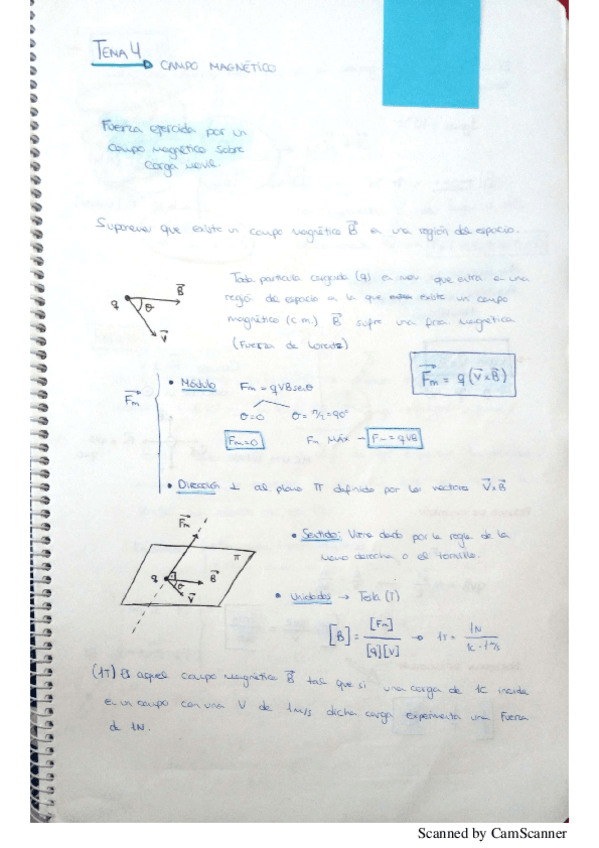 TEMA 4
CAMPO MAGNÉTICO
Fuerza ejercida por un
campo magnético sobre
carga móvil.
Suponemos que existe un campo magnético B⃗ en una región del espacio.
Toda partícula cargada (q) en mov. que entra en una
región del espacio en la que existe un campo
magnético (c.m.) B⃗ sufre una fza magnética
(Fuerza de Lorentz)
q θ B⃗
V⃗
F⃗m = q (V⃗ x B⃗)
F⃗m
• Módulo Fm = qVBsenθ
θ=0 θ= π/2 = 90°
Fm=0 Fm MÁX → Fm = qVB
• Dirección ⊥ al plano π definido por los vectores V⃗ x B⃗
F⃗m
π
q θ B⃗
V⃗
• Sentido: Viene dado por la regla de la
mano derecha o el tornillo.
• Unidades → Tesla (T)
[B] = [Fm] / [q][V] → 1T = 1N / 1C · 1m/s
(1T) Es aquel campo magnético B⃗ tal que si una carga de 1C incida
en un campo con una V de 1m/s dicha carga experimenta una Fuerza
de 1N.
Scanned by CamScanner